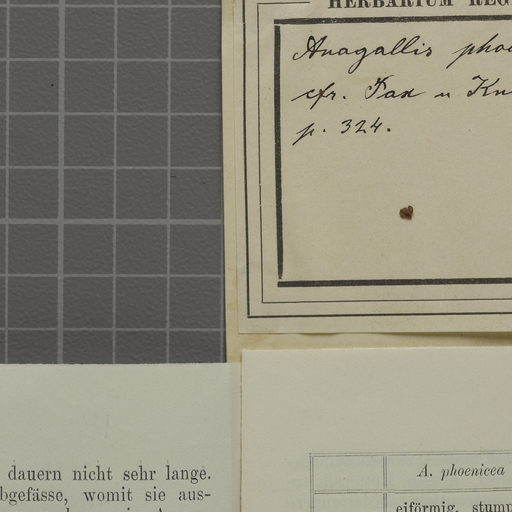 HERBARIUM REG
Anagallis phoe
cfr. Pax u Kn
p. 324.
dauern nicht sehr lange.
bgefässe, womit sie aus-
A. phoenicea
eiförmig, stump